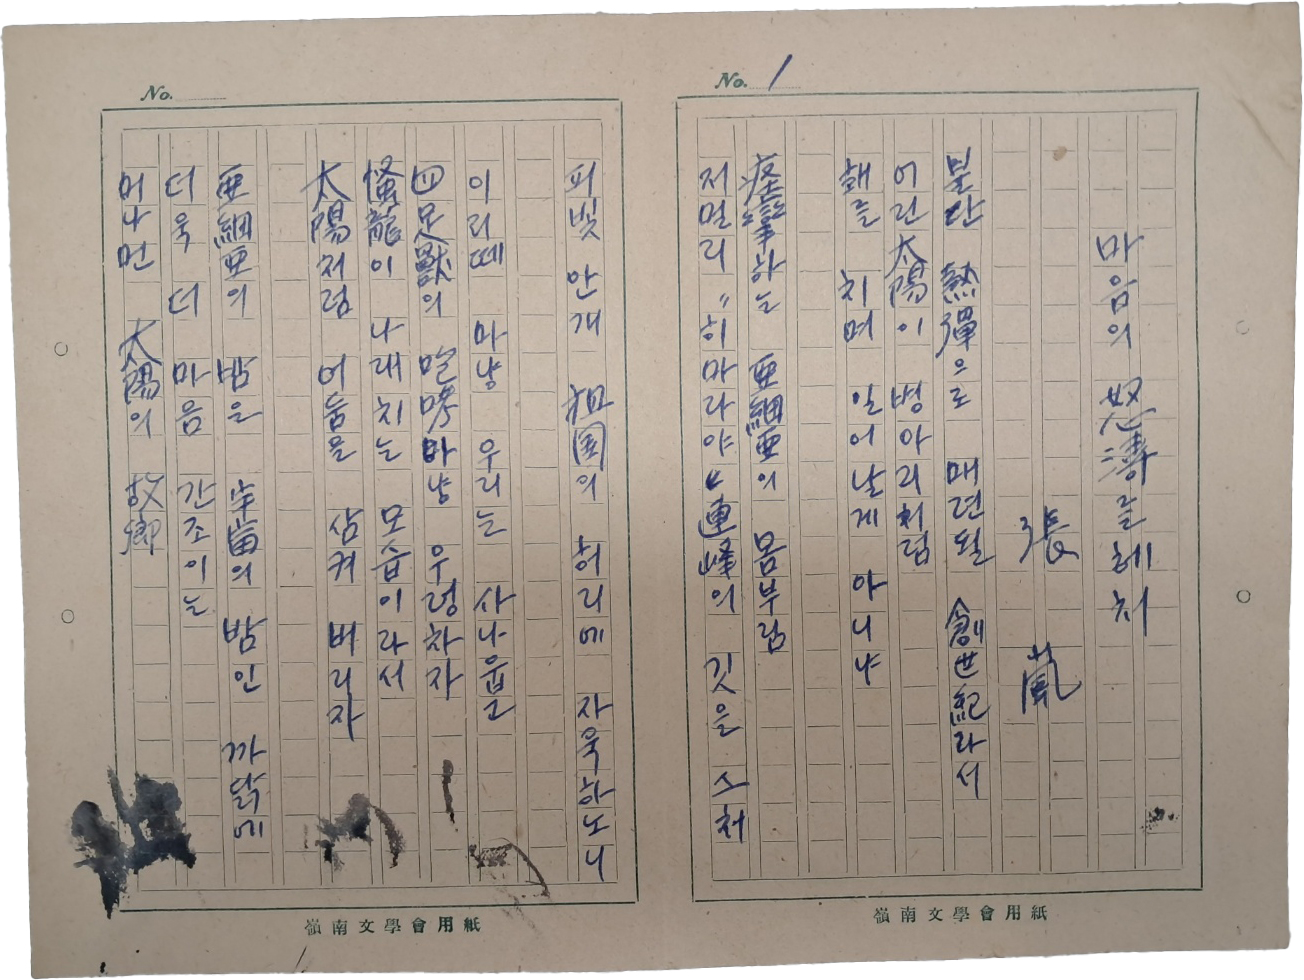 No. 1
마음의 怒濤를 헤치
張 菎
불탄 熱彈으로 매련될 創世紀라서
어린 太陽이 병아리처럼
해를 치며 일어날게 아니냐
痙攣하는 亜細亜의 몸부림
저멀리 "히마라야" 連峰의 깃을 스처
嶺南文學會用紙
No.
피빛 안개 祖国의 허리에 자욱하노니
이리떼 마냥 우리는 사나웁고
四足獸의 咆哮마냥 우렁차자
怪龍이 나래치는 모습이라서
太陽처럼 어둠을 삼켜 버리자
亜細亜의 밤은 宇宙의 밤인 까닭에
더욱 더 마음 간조이는
머나먼 太陽의 故鄕
嶺南文學會用紙